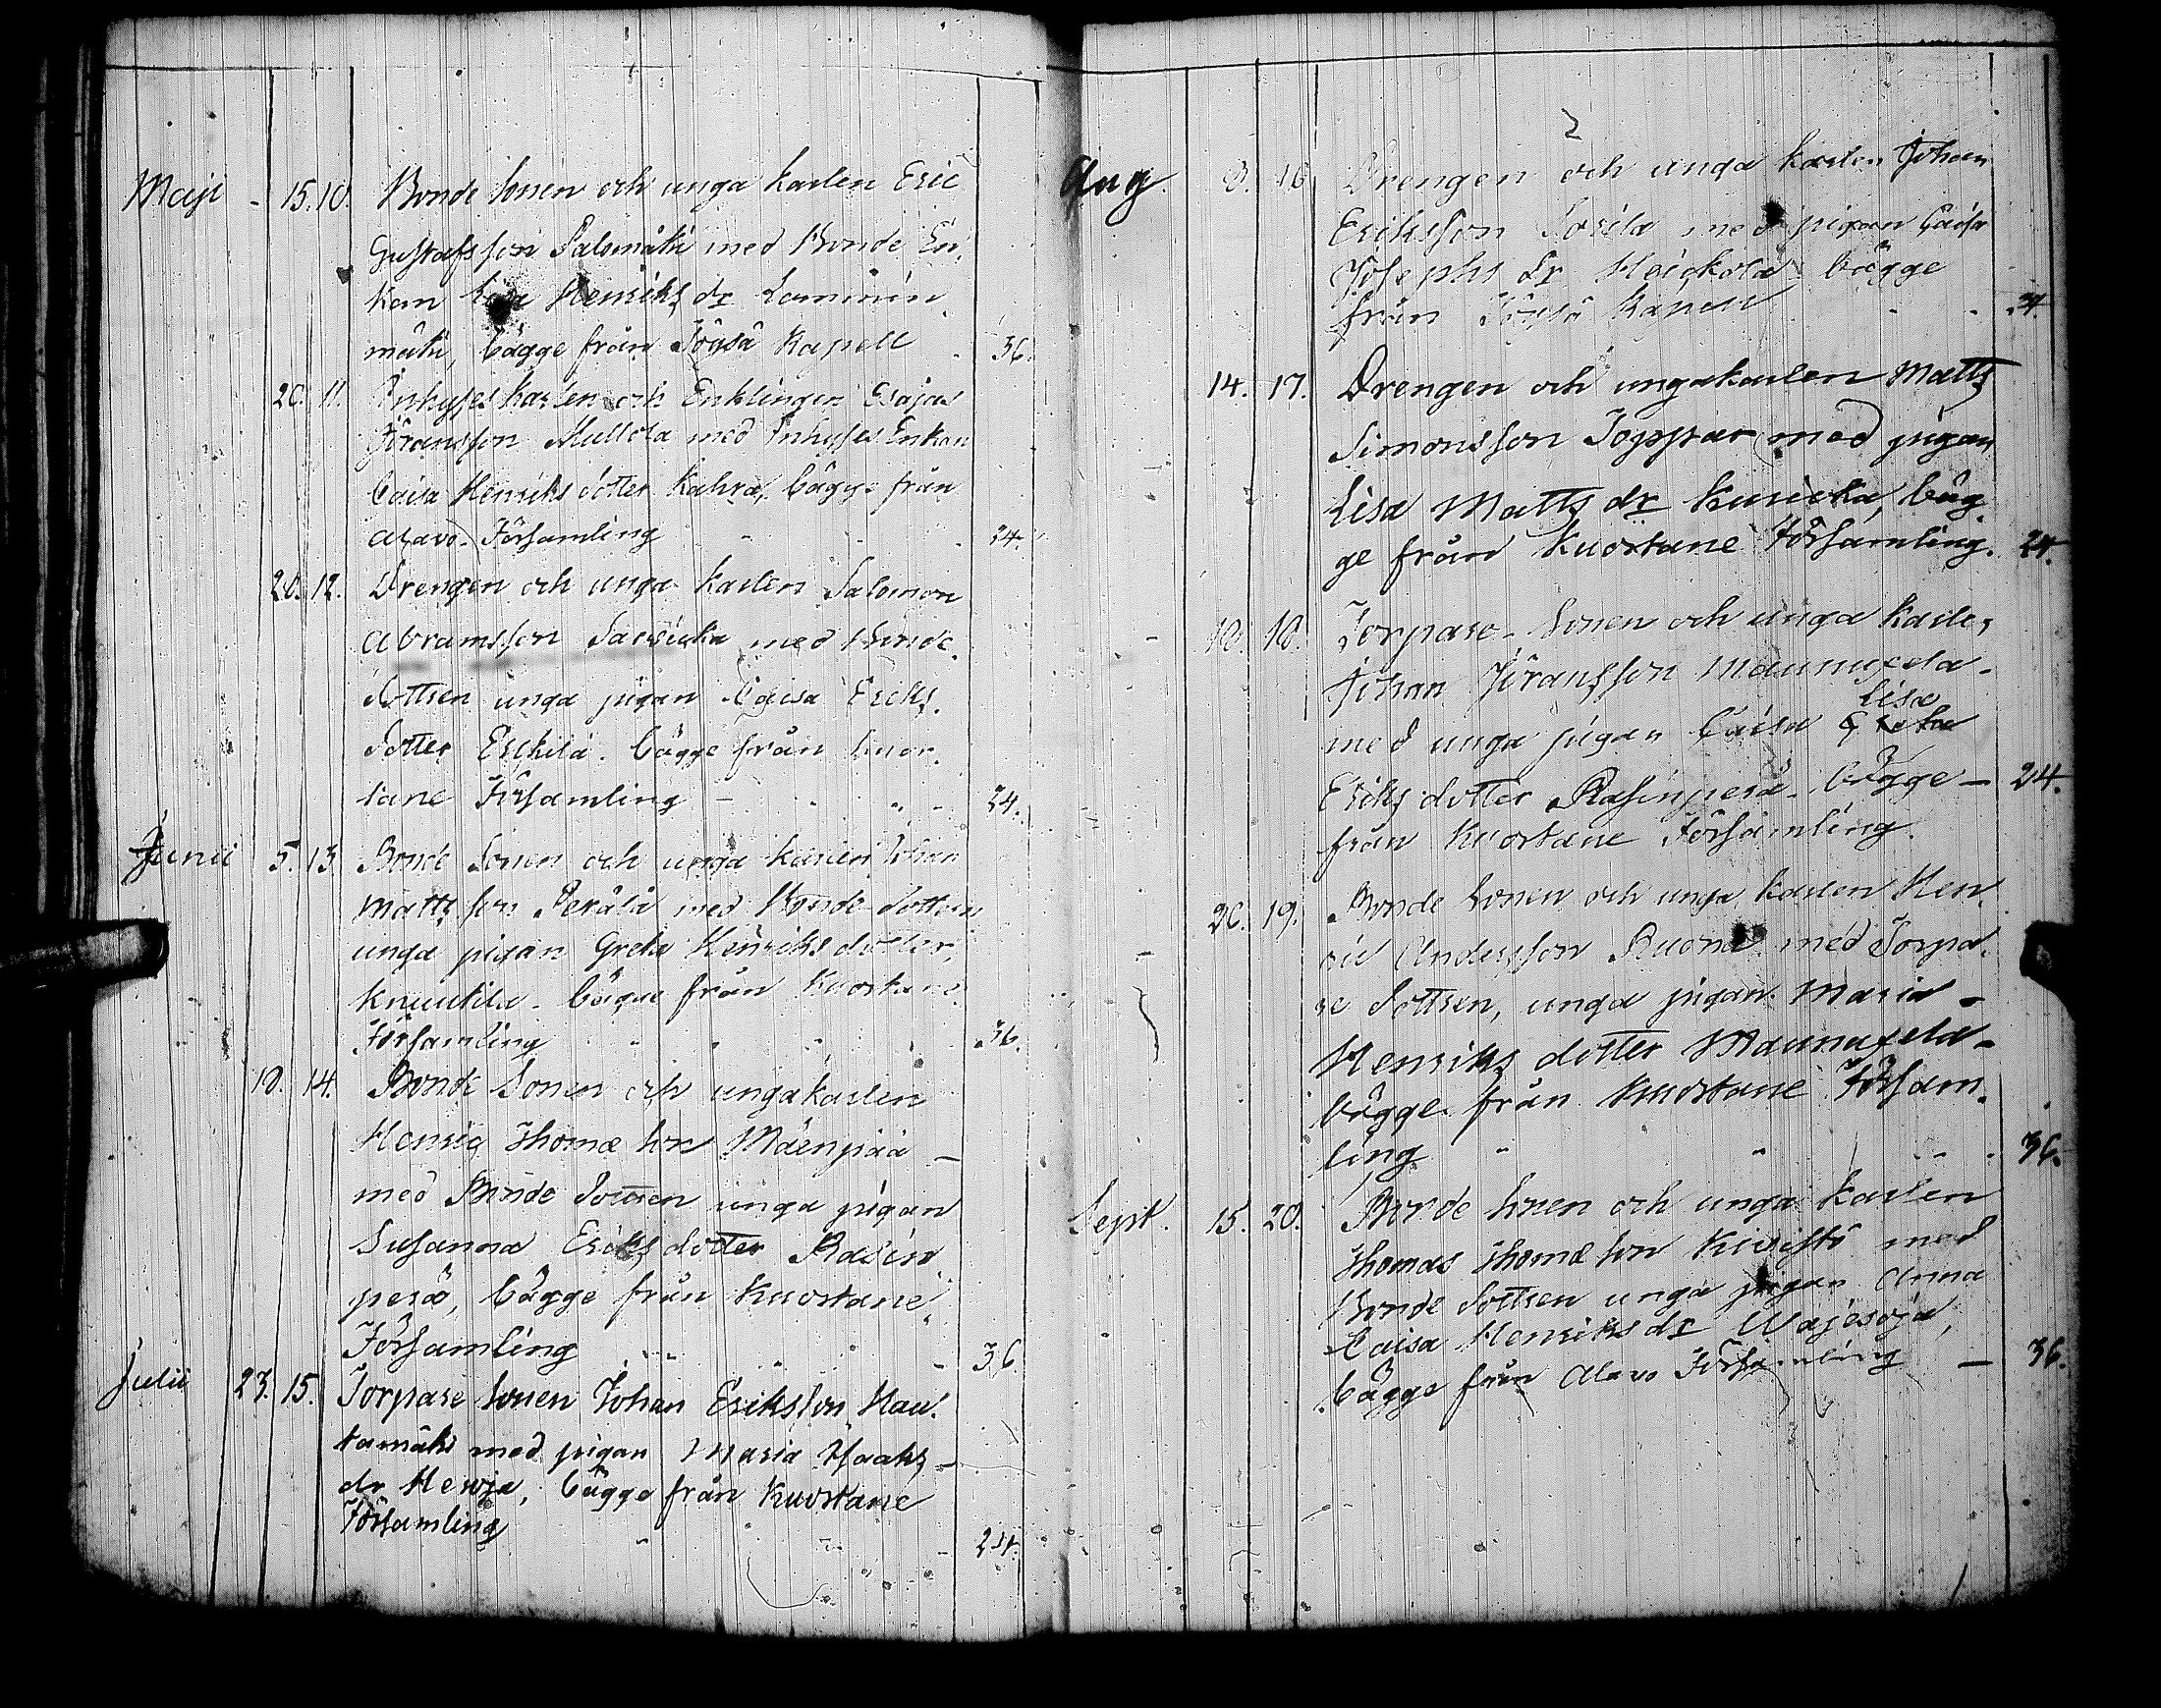 Maji - 15. 10. Bonde Sonen och unga karlen Eric
Gustafsson Salomäki med Bonde En-
kan Lisa Henriks dr Lamminn
mäki, bägge från Töysä Kapell - 36.
20. 11. Inhyses karlen och Enklingen Esajas
Jöransson Mullola med Inhyses Enkan
Caisa Henriks dotter Kahra, bägge från
Alavo Församling - - - 24.
28. 12. Drengen och unga karlen Salomon
Abramsson Sarvicka med Bonde
Dottren unga pigan Caisa Ericks
Dotter Eskilä. bägge från Kuor-
tane Församling - - - 24.
Junii 5. 13. Bonde Sonen och unga karlen Johan
Matts son Perälä med Bonde Dottren
unga pigan Greta Henriks dotter
Knuutila - bägge från Kuortane
Församling - - - 36.
18. 14. Bonde Sonen och unga karlen
Henric Thomæ son Mäenpää -
med Bonde Dottren unga pigan
Susanna Eriks dotter Rasin
perä, bägge från Kuortane
Församling - - - 36
Julii 23. 15. Torpare Sonen Johan Eriksson Hau-
tamäki med pigan Maria Isaaks
dr Heroja, bägge från Kuortane
Församling - - - 24.
2
Aug. 8. 16. Drengen och unga karlen Johan
Eriksson Sorila med pigan Caisa
Josephs dr Heickola bägge
från Töysä Kapell - - 24.
14. 17. Drengen och unga karlen Matts
Simonsson Toppar med pigan
Lisa Matts dr Kuricka, bäg
ge från Kuortane Församling. 24.
- 18. 18. Torpare - Sonen och unga karlen
Johan Jöransson Maunuxela -
Lisa
med unga pigan Caisa Greta
Eriks dotter Rasinperä - bägge - 24.
från Kuortane Församling.
- 26. 19. Bonde Sonen och unga karlen Hen
ric Andersson Ruona med Torpa-
re Dottren, unga pigan Maria -
Henriks dotter Maunuxela -
bägge från Kuortane Försam-
ling - - - 36.
Sept. 15. 20. Bonde Sonen och unga karlen
Thomas Thomæ son Kivistö med
Bonde Dottren unga pigan Anna
Caisa Henriks dr Wäjesöjä,
bägge från Alavo Församling - 36.